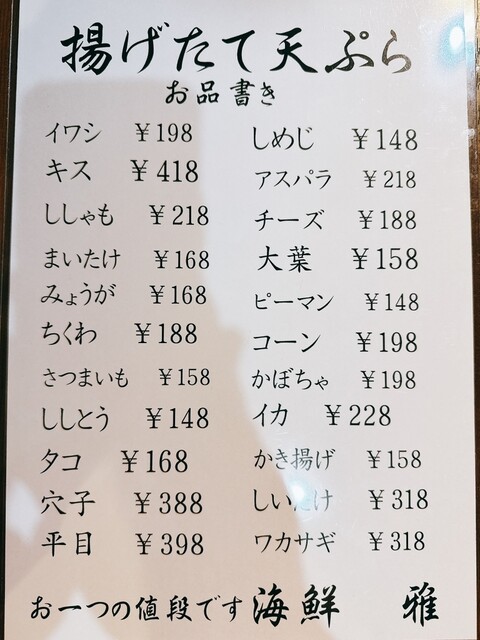 揚げたて天ぷら
お品書き
イワシ ￥198
キス ￥418
ししゃも ￥218
まいたけ ￥168
みょうが ￥168
ちくわ ￥188
さつまいも ￥158
ししとう ￥148
タコ ￥168
穴子 ￥388
平目 ￥398
しめじ ￥148
アスパラ ￥218
チーズ ￥188
大葉 ￥158
ピーマン ￥148
コーン ￥198
かぼちゃ ￥198
イカ ￥228
かき揚げ ￥158
しいたけ ￥318
ワカサギ ￥318
お一つの値段です 海鮮 雅